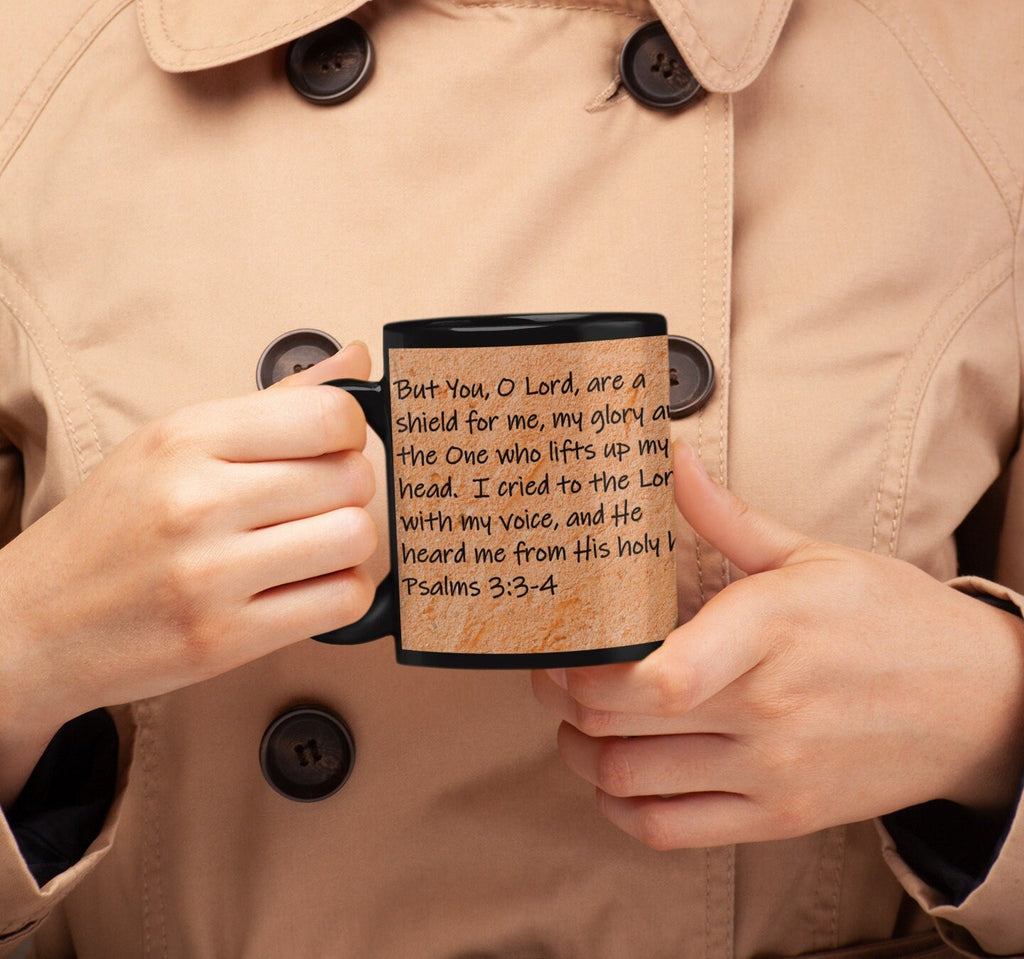 But You, O Lord, are a
shield for me, my glory
the One who lifts up my
head. I cried to the
with my voice, and He
heard me from His holy
Psalms 3:3-4